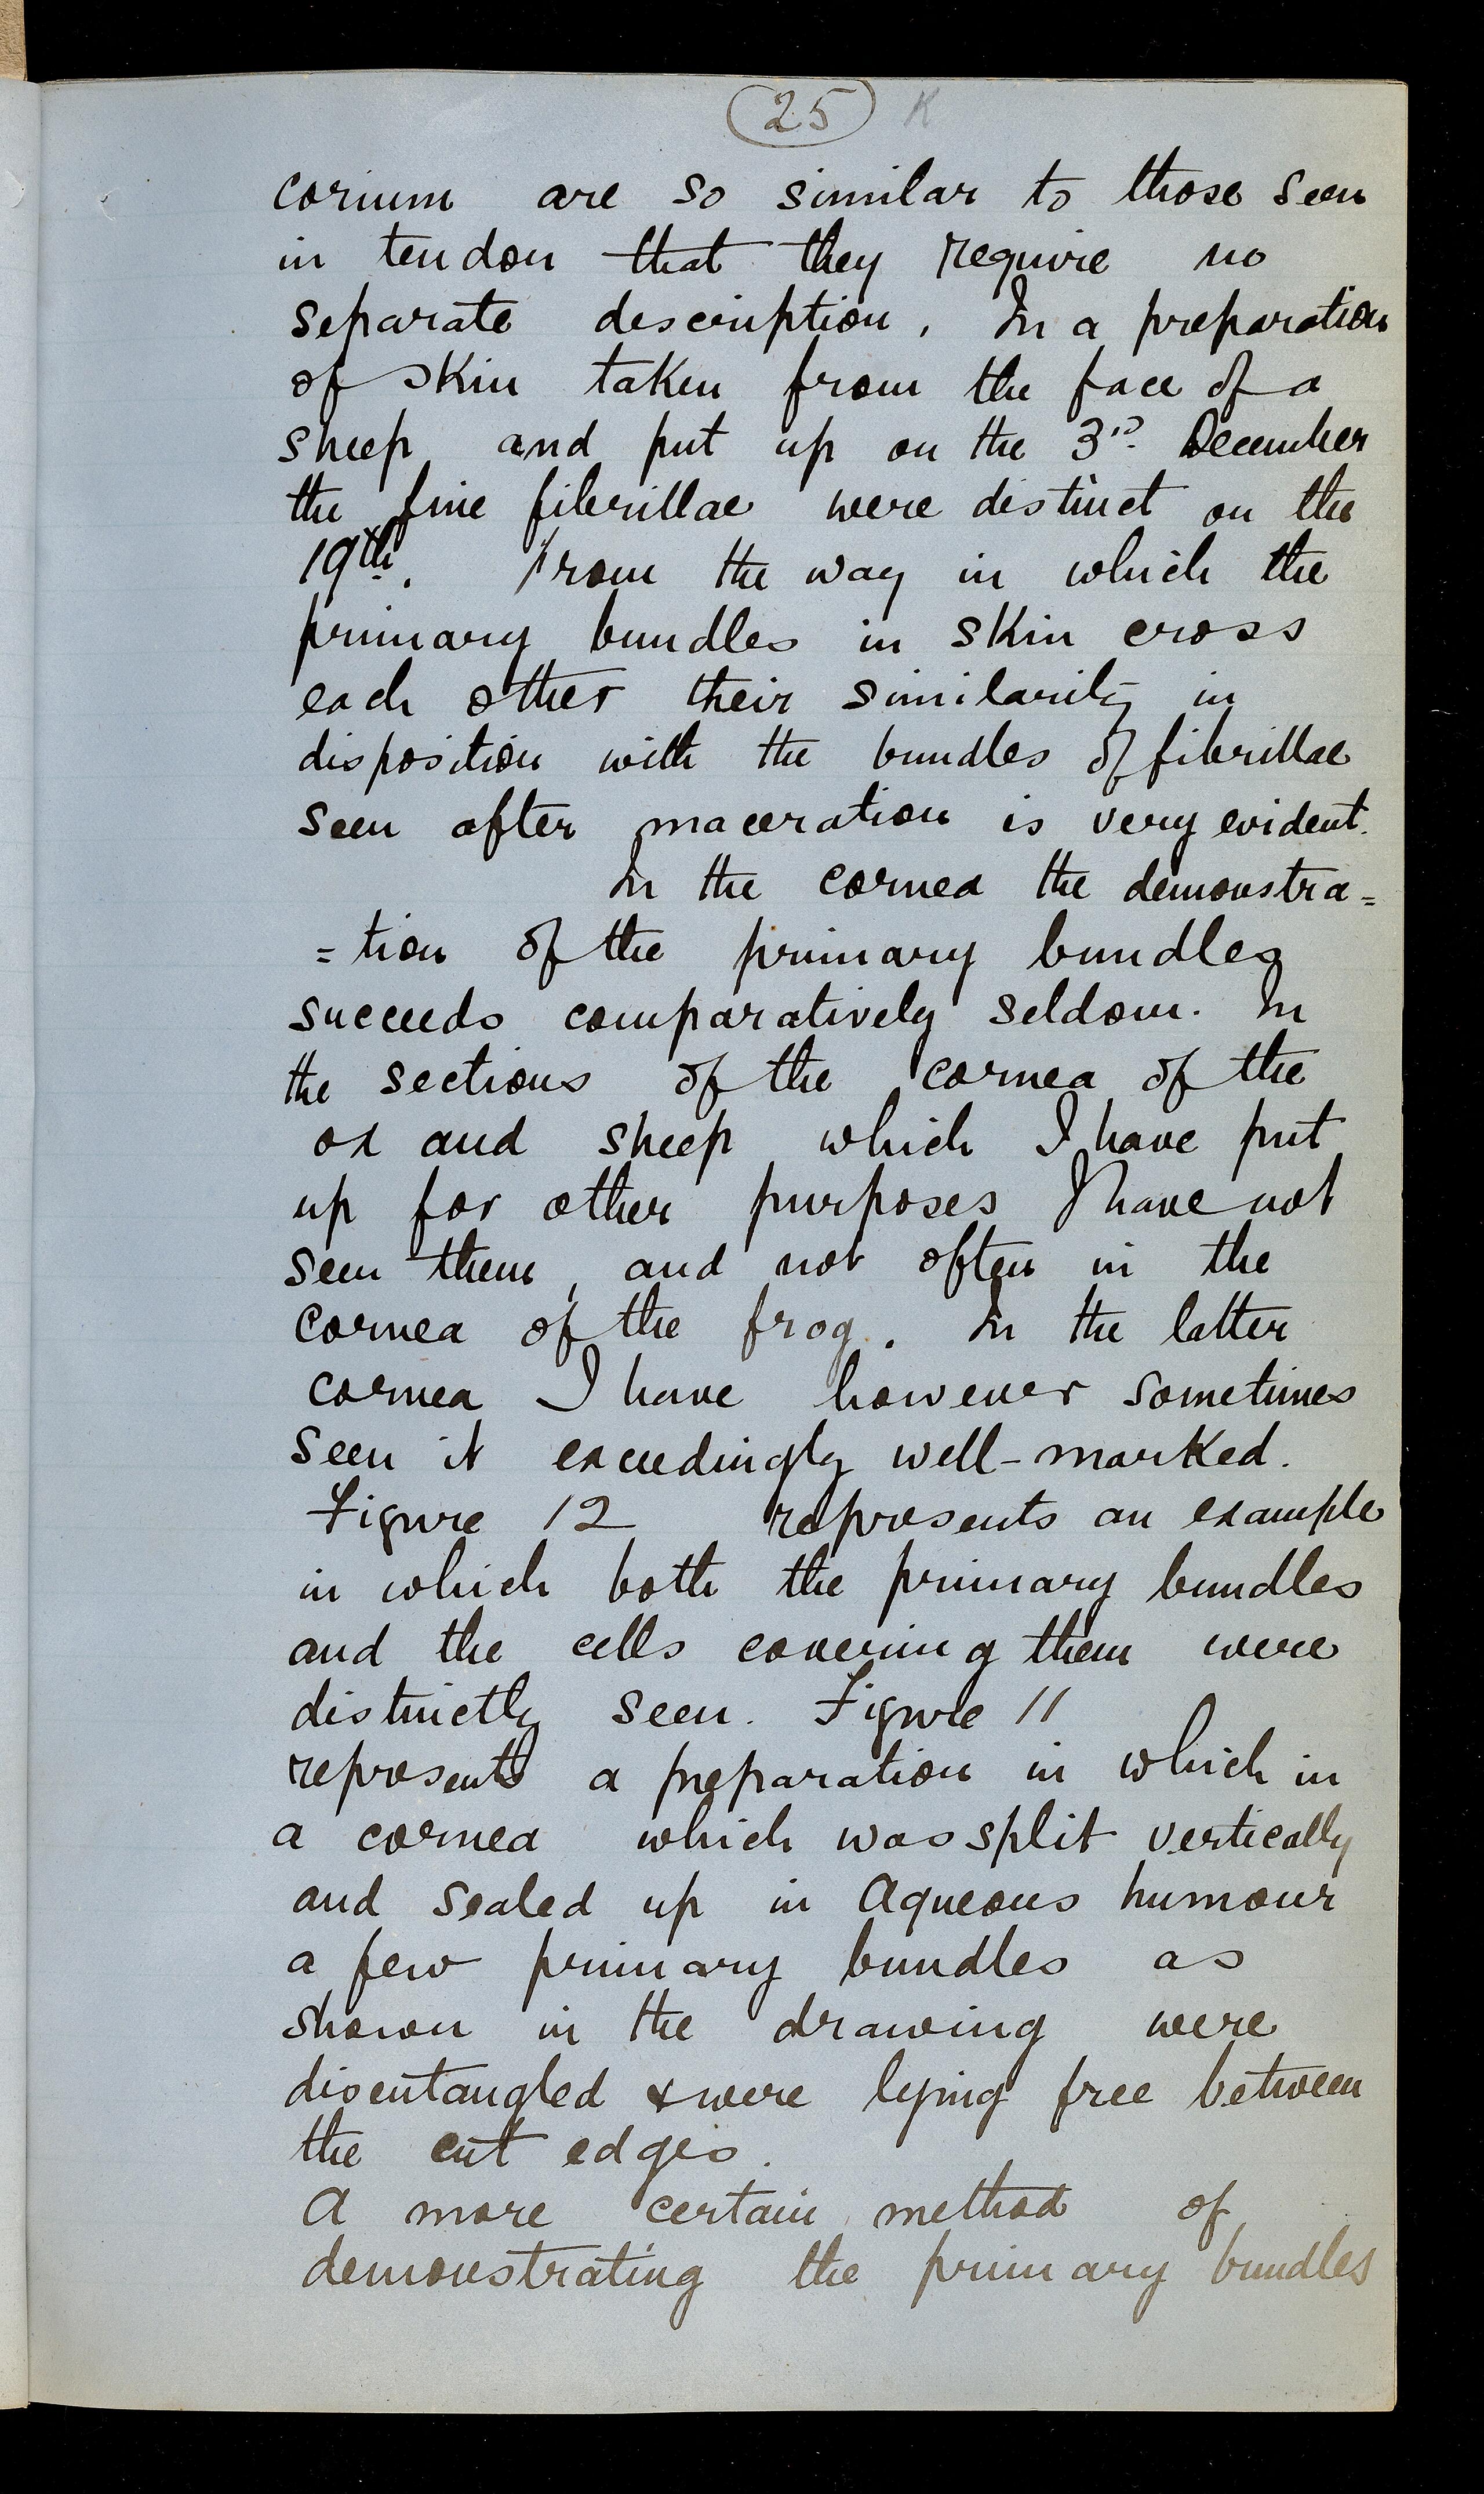 25 K
corium are so similar to those seen
in tendon that they require no
separate description. In a preparation
of skin taken from the face of a
sheep and put up on the 3rd December
the fine fibrillae were distinct on the
19th. From the way in which the
primary bundles in skin cross
each other their similarity in
disposition with the bundles of fibrillae
seen after maceration is very evident.
In the cornea the demonstra=
=tion of the primary bundles
succeeds comparatively seldom. In
the sections of the cornea of the
ox and sheep which I have put
up for other purposes I have not
seen them, and not often in the
cornea of the frog. In the latter
cornea I have however sometimes
seen it exceedingly well-marked.
Figure 12 represents an example
in which both the primary bundles
and the cells covering them were
distinctly seen. Figure 11
represents a preparation in which in
a cornea which was split vertically
and sealed up in Aqueous humour
a few primary bundles as
shown in the drawing were
disentangled & were lying free between
the cut edges.
A more certain method of
demonstrating the primary bundles